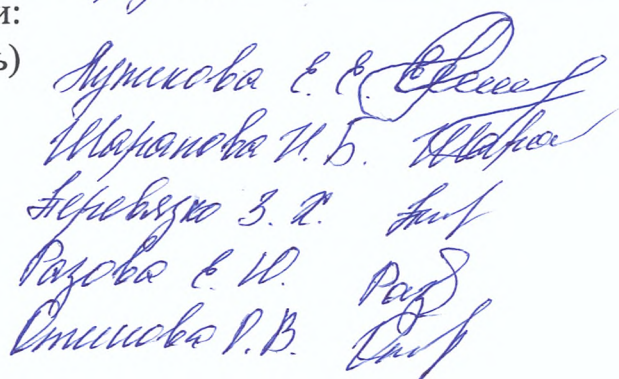 и:
ь)
Лужикова Е. Е.
Шарапова И. Б. Шара
Перевязко З. Х.
Разова Е. Ю. Раз
Р. В.